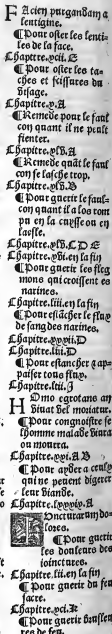 F Acien purgandam a
lentigine.
¶Pour oster les lenti-
les de la face.
Chapitre.xcii.E
¶Pour oster les ta-
ches et fissures du
visage.
Chapitre.x.A
¶Remede pour le faul
con quant il ne peult
sienter.
Chapitre.xlv.A
¶Remede quāt le faul
con se lasche trop.
Chapitre.xlv.B
¶Pour guerir le faul-
con quant il a los rom
pu en la cuysse ou en
laesle.
Chapitre.xlv.C D E
Chapitre.xlvi.en la fin
¶Pour guerir les fleg
mons qui croissent es
narines.
Chapitre.liii.en la fin
¶Pour estācher le flux
de sang des narines.
Chapitre.xxvii.D
Chapitre.liii.D
¶Pour estancher & ap-
paiser tous flux.
Chapitre.liii.I
H Omo egrotans an
viuat vel moriatur.
¶Pour congnoistre se
lhomme malade viura
ou mourra.
Chapitre.xxi.A B
¶Pour ayder a ceulx
qui ne peuent digerer
leur viande.
Chapitre.lxxxix.A
Iuncturarum do-
lores.
¶Pour guerir
les douleurs des
ioinctures.
Chapitre.lii.en la fin
¶Pour guerir du feu
sacre.
Chapitre.xci.K
¶Pour guerir
res de feu.